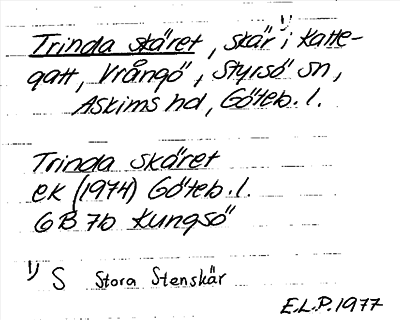 Trinda skäret, skär 1) i Katte-
gatt, Vrångö, Styrsö sn,
Askims hd, Göteb. l.
Trinda skäret
ek (1974) Göteb. l.
6B 7b Kungsö
1) S Stora Stenskär
E.L.P. 1977